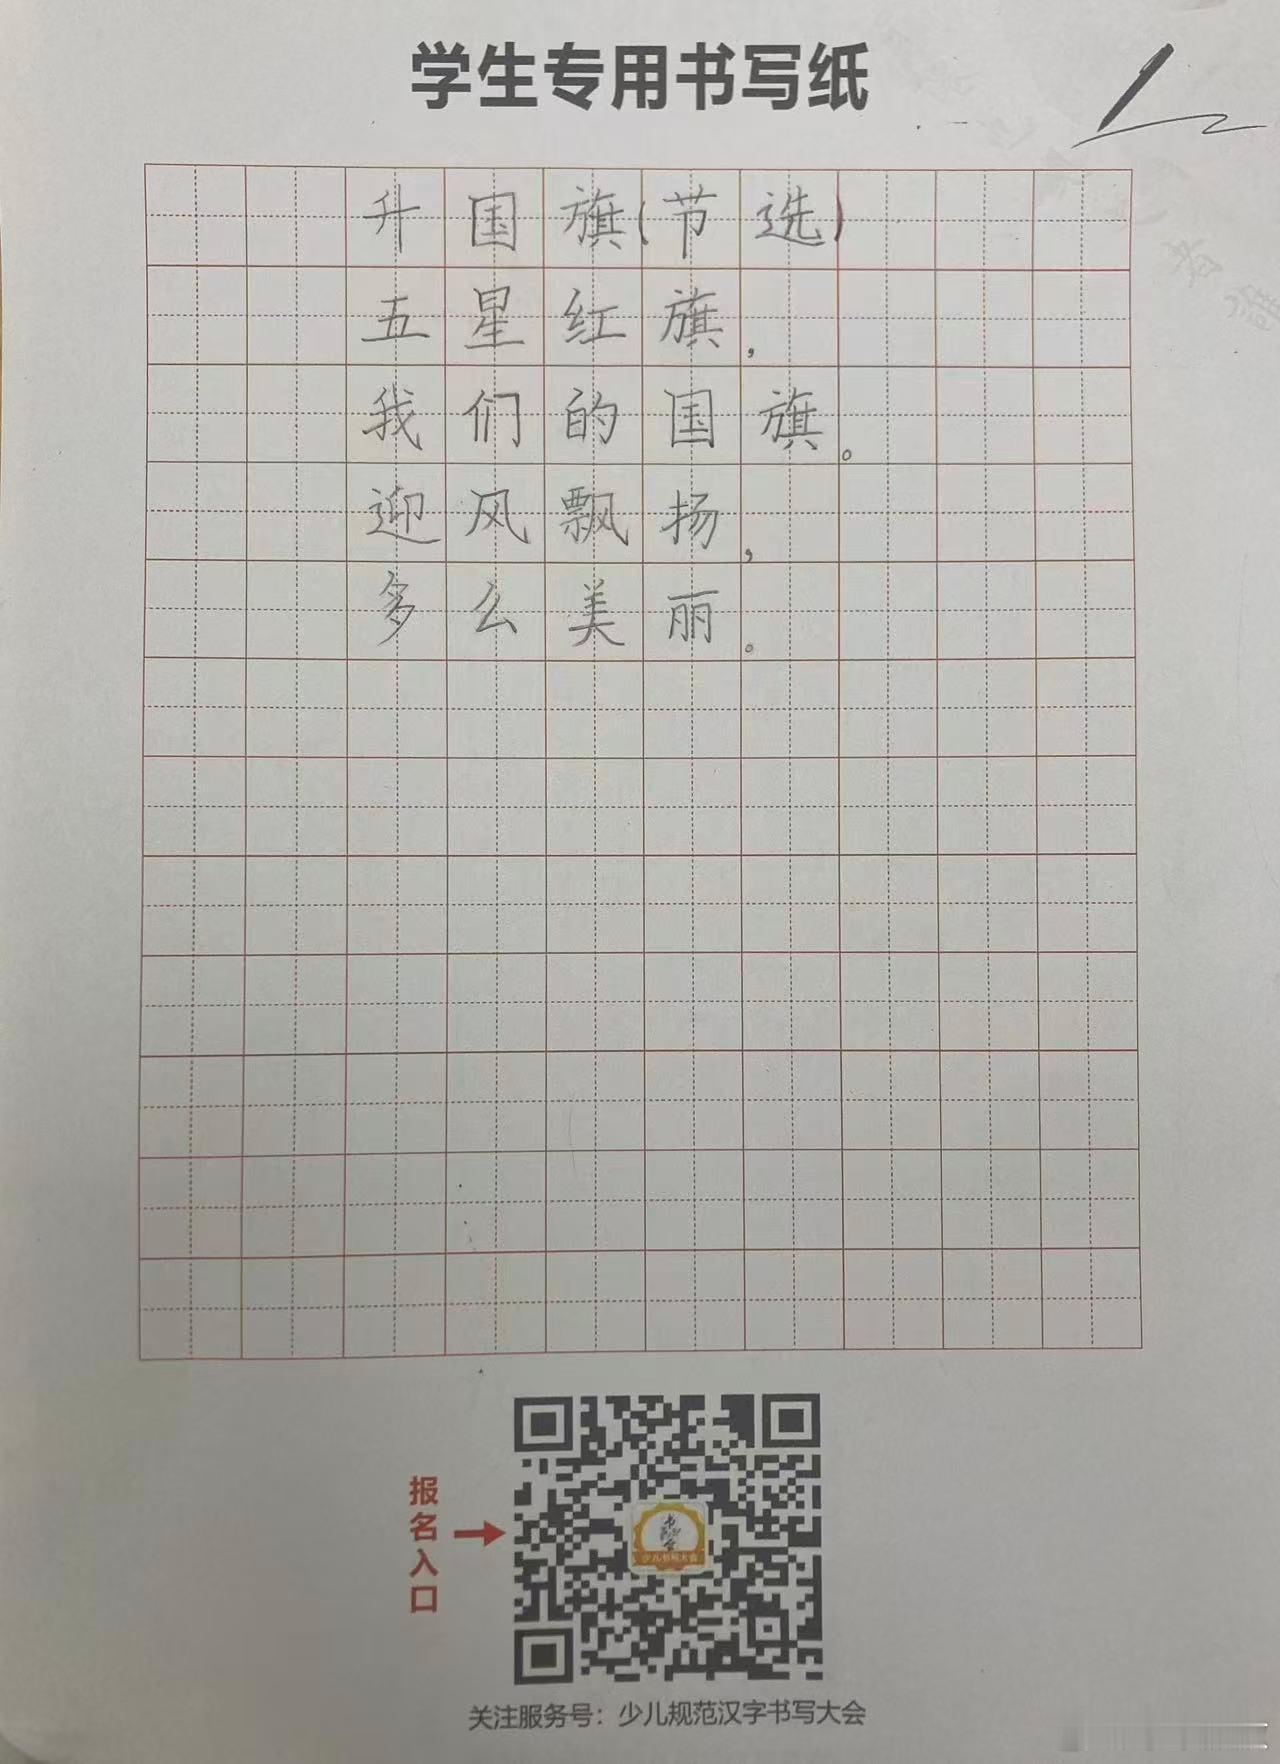 学生专用书写纸
升国旗(节选)
五星红旗，
我们的国旗。
迎风飘扬，
多么美丽。
报名入口
少儿书写大会
关注服务号：少儿规范汉字书写大会